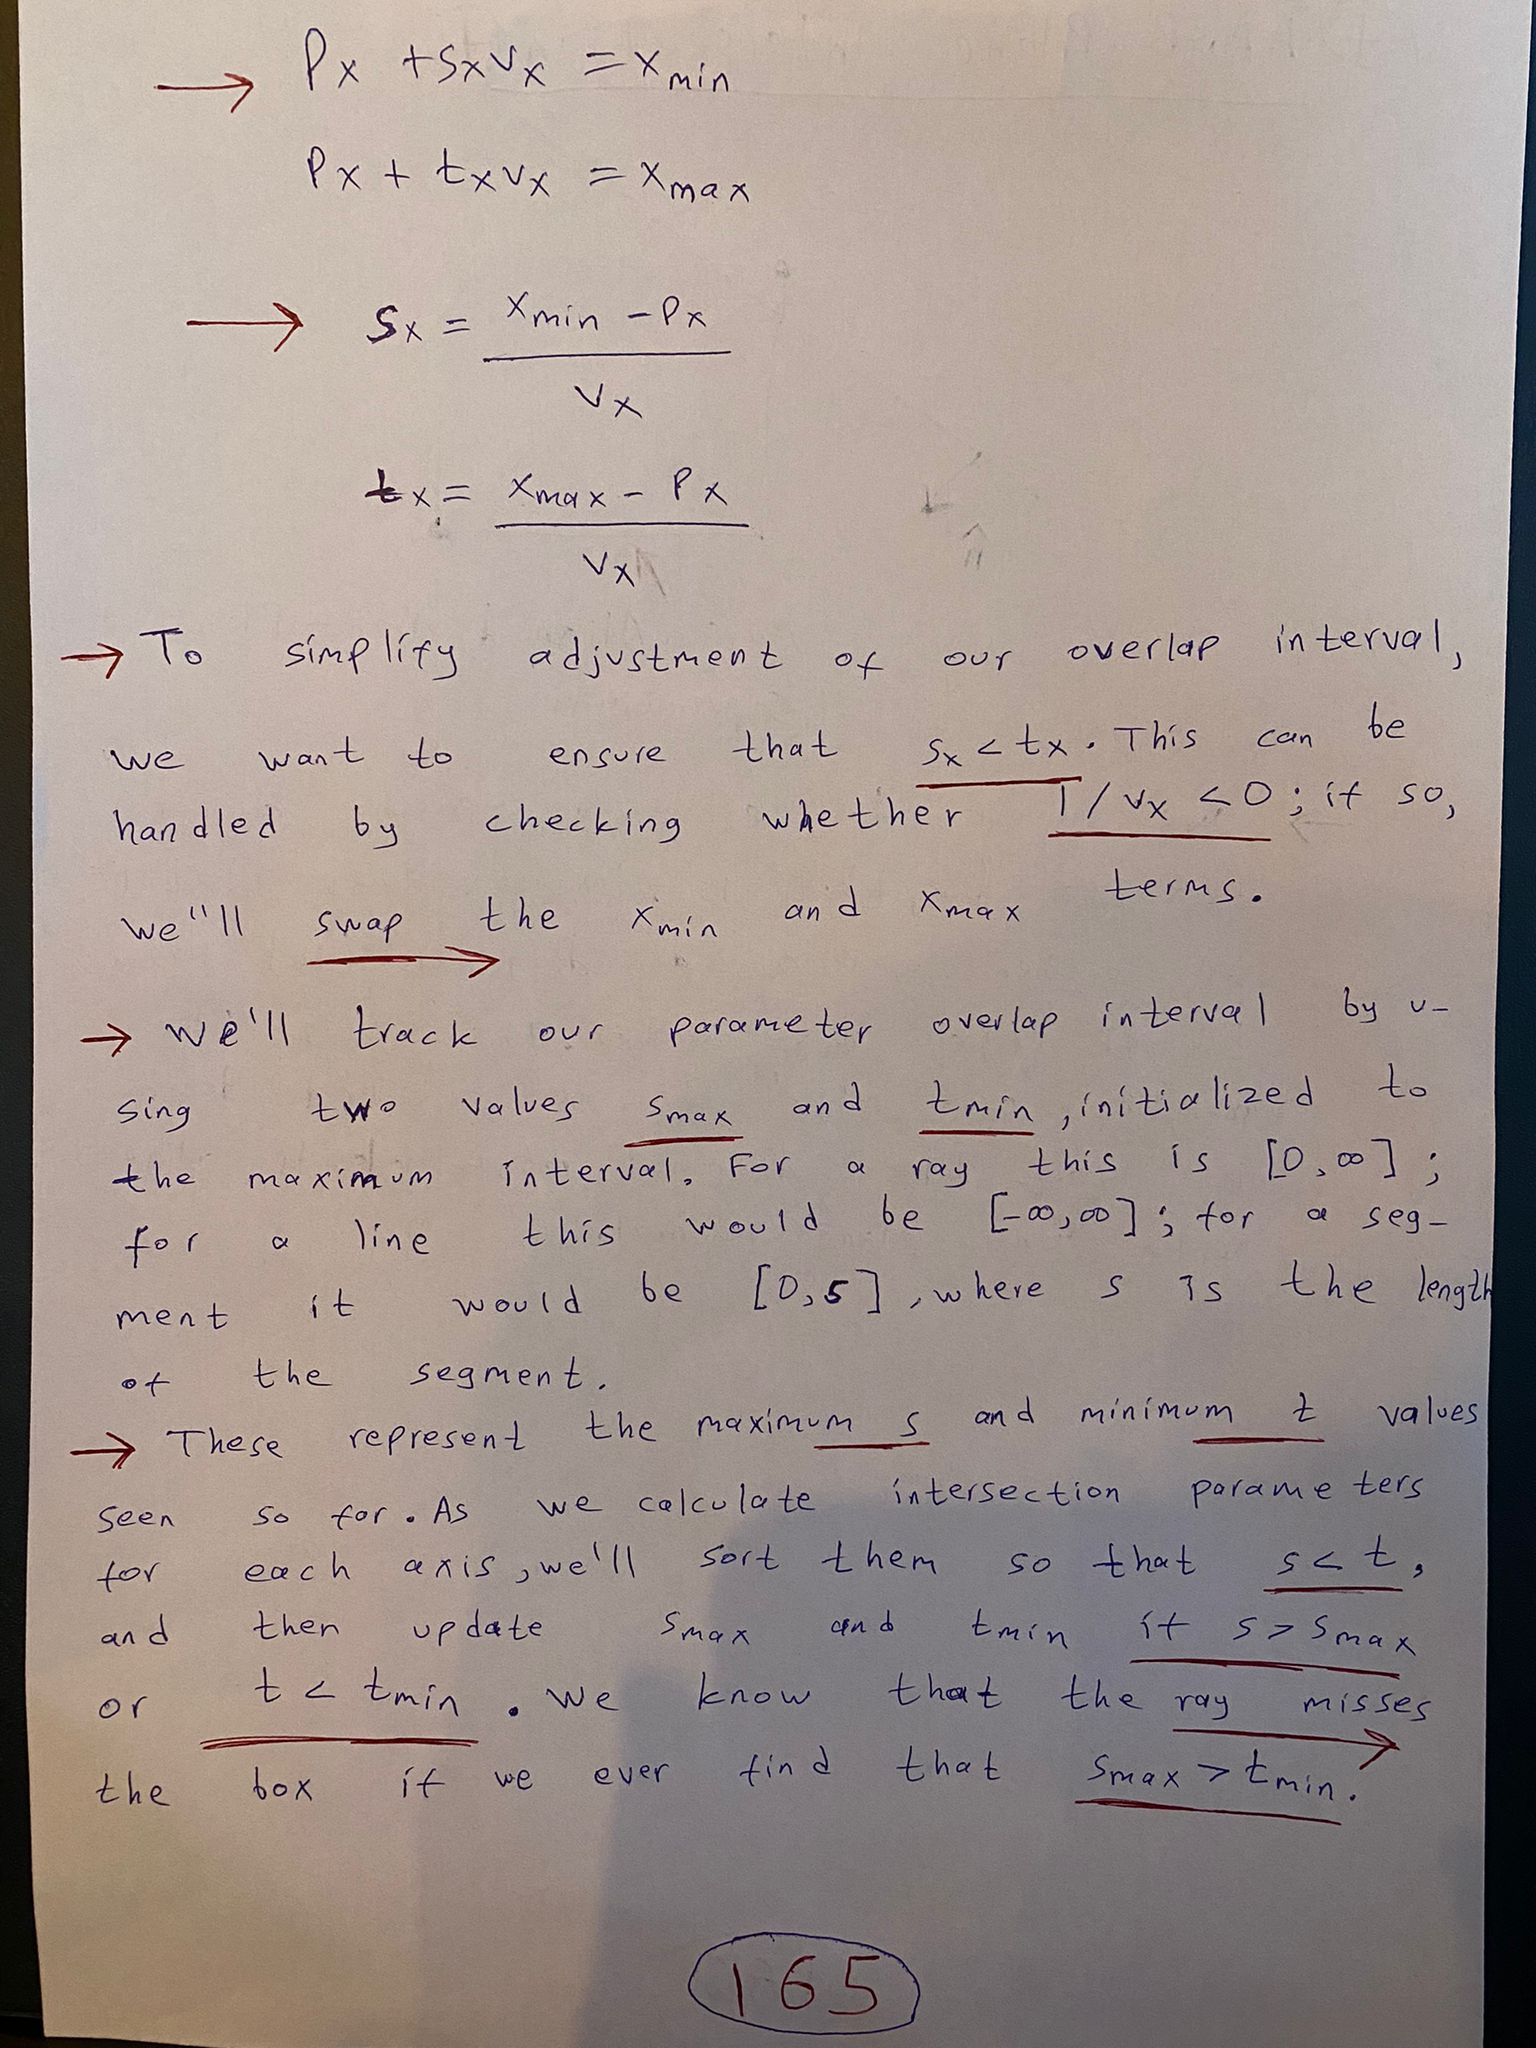 → Px + sxvx = xmin
Px + txvx = xmax
→ sx = xmin - Px
vx
tx = xmax - Px
vx
→ To simplify adjustment of our overlap interval,
we want to ensure that sx < tx. This can be
handled by checking whether 1/vx < 0; if so,
we"ll swap the xmin and xmax terms.
→ we'll track our parameter overlap interval by u-
sing two values smax and tmin, initialized to
the maximum interval. For a ray this is [0,∞];
for a line this would be [-∞,∞]; for a seg-
ment it would be [0,s], where s is the length
of the segment.
→ These represent the maximum s and minimum t values
seen so far. As we calculate intersection parameters
for each axis, we'll sort them so that s < t,
and then update smax and tmin if s > smax
or t < tmin. we know that the ray misses
the box if we ever find that smax > tmin.
165